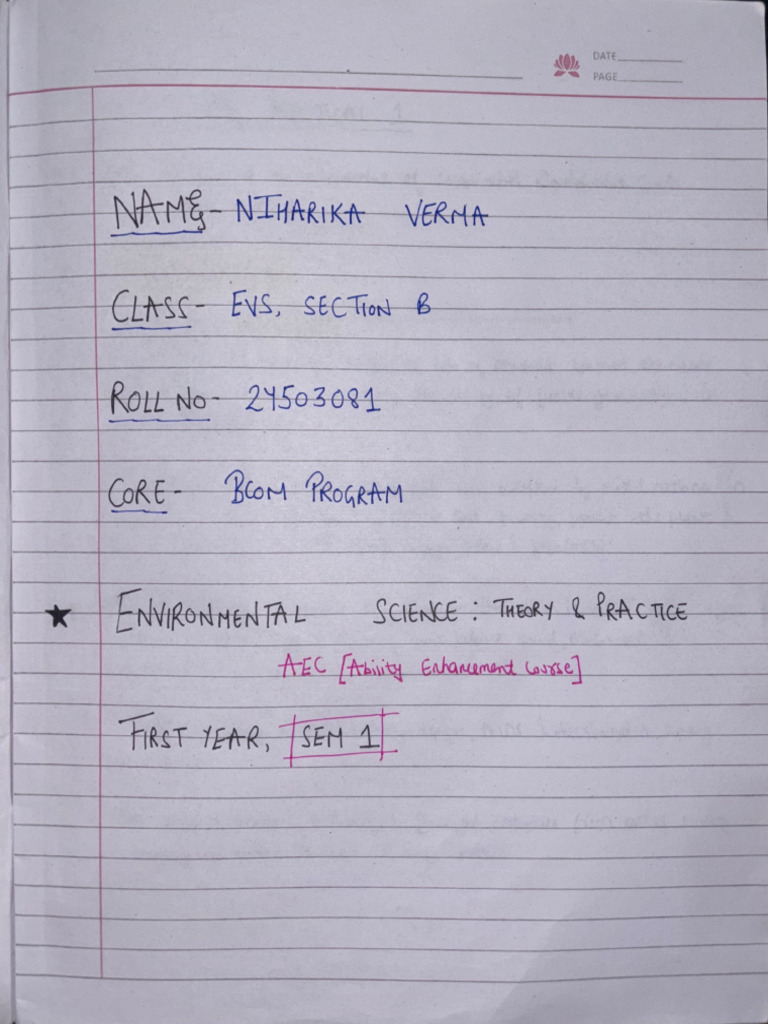 DATE
PAGE
NAME - NIHARIKA VERMA
CLASS - EVS, SECTION B
ROLL NO - 24503081
CORE - BCOM PROGRAM
★ ENVIRONMENTAL SCIENCE : THEORY & PRACTICE
AEC [Ability Enhancement Course]
FIRST YEAR, SEM 1